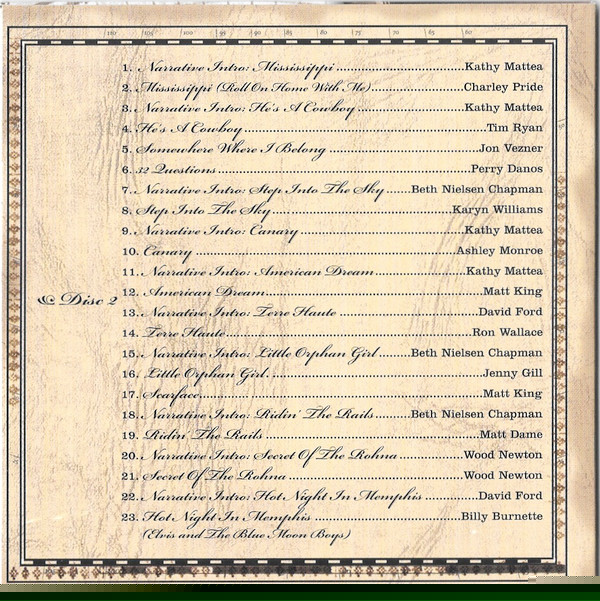 110 105 100 95 90 85 80 75 70 65 60
1. Narrative Intro: Mississippi ..........Kathy Mattea
2. Mississippi (Roll On Home With Me)..........Charley Pride
3. Narrative Intro: He's A Cowboy..........Kathy Mattea
4. He's A Cowboy..........Tim Ryan
5. Somewhere Where I Belong ..........Jon Vezner
6. 32 Questions..........Perry Danos
7. Narrative Intro: Step Into The Sky......Beth Nielsen Chapman
8. Step Into The Sky..........Karyn Williams
9. Narrative Intro: Canary..........Kathy Mattea
10. Canary ..........Ashley Monroe
11. Narrative Intro: American Dream..........Kathy Mattea
Disc 2
12. American Dream..........Matt King
13. Narrative Intro: Terre Haute ..........David Ford
14. Terre Haute..........Ron Wallace
15. Narrative Intro: Little Orphan Girl.......Beth Nielsen Chapman
16. Little Orphan Girl. ..........Jenny Gill
17. Scarface..........Matt King
18. Narrative Intro: Ridin' The Rails.......Beth Nielsen Chapman
19. Ridin' The Rails..........Matt Dame
20. Narrative Intro: Secret Of The Rohna..........Wood Newton
21. Secret Of The Rohna..........Wood Newton
22. Narrative Intro: Hot Night In Memphis ..........David Ford
23. Hot Night In Memphis ..........Billy Burnette
(Elvis and The Blue Moon Boys)